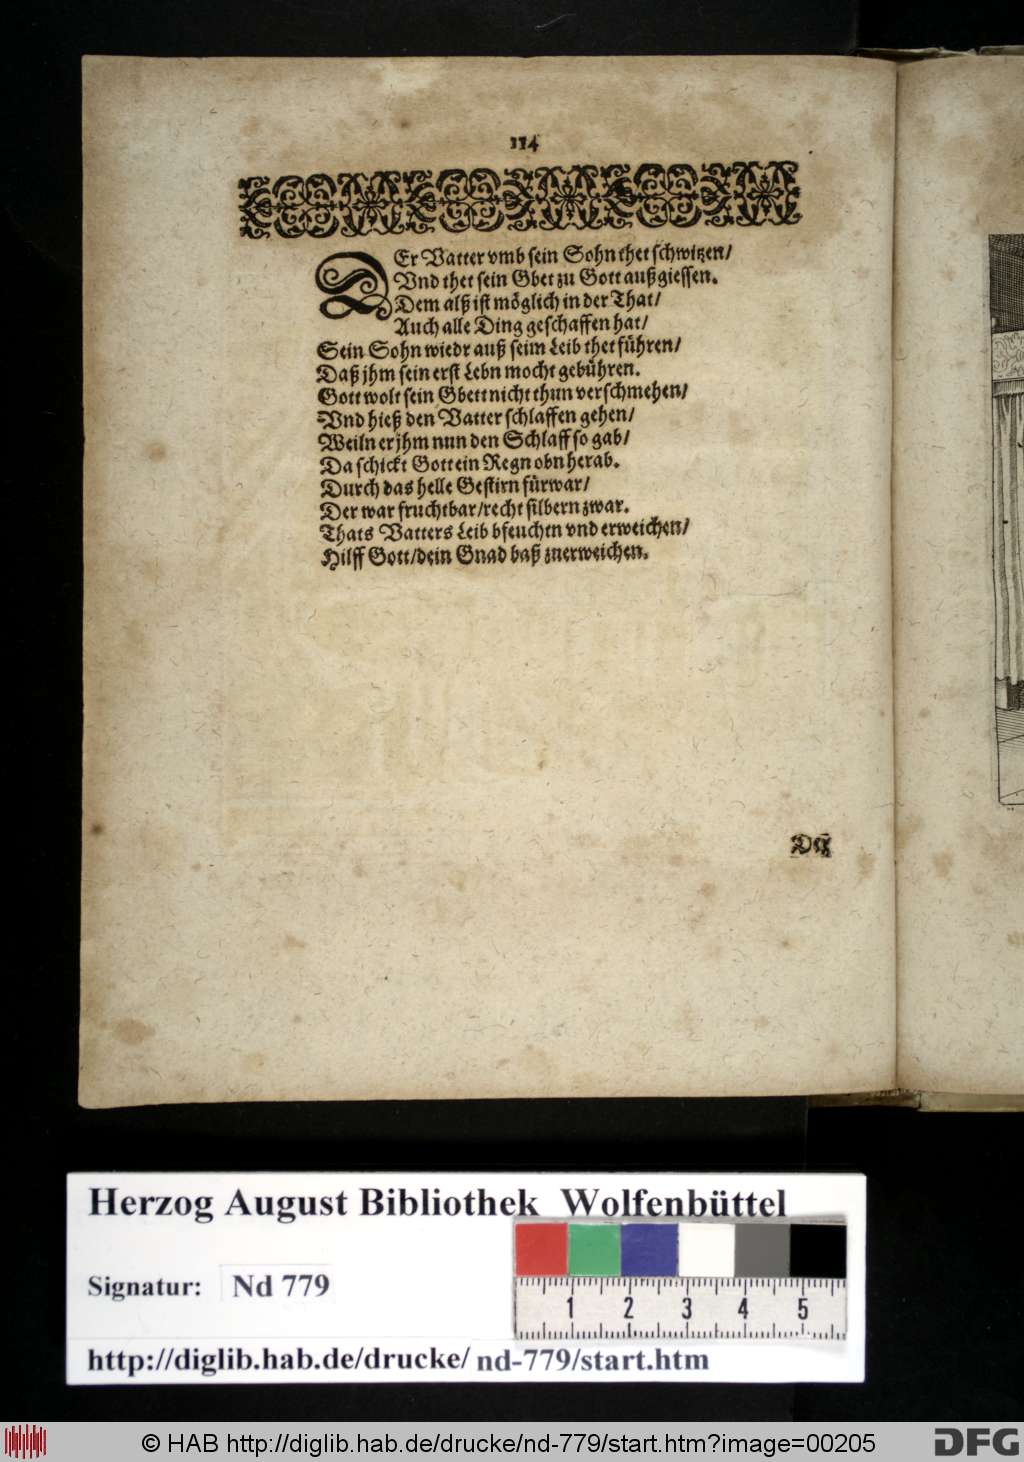 114
DEr Vatter vmb sein Sohn thet schwitzen/
Vnd thet sein Gbet zu Gott außgiessen.
Dem alß ist möglich in der That/
Auch alle Ding geschaffen hat/
Sein Sohn wiedr auß seim Leib thet führen/
Daß jhm sein erst Lebn mocht gebühren.
Gott wolt sein Gbett nicht thun verschmehen/
Vnd hieß den Vatter schlaffen gehen/
Weiln er jhm nun den Schlaff so gab/
Da schickt Gott ein Regn obn herab.
Durch das helle Gestirn fürwar/
Der war fruchtbar/recht silbern zwar.
Thats Vatters Leib bfeuchtn vnd erweichen/
Hilff Gott/dein Gnad baß zuerweichen.
Herzog August Bibliothek Wolfenbüttel
Signatur: Nd 779
1 2 3 4 5
http://diglib.hab.de/drucke/ nd-779/start.htm
© HAB http://diglib.hab.de/drucke/nd-779/start.htm?image=00205
DFG